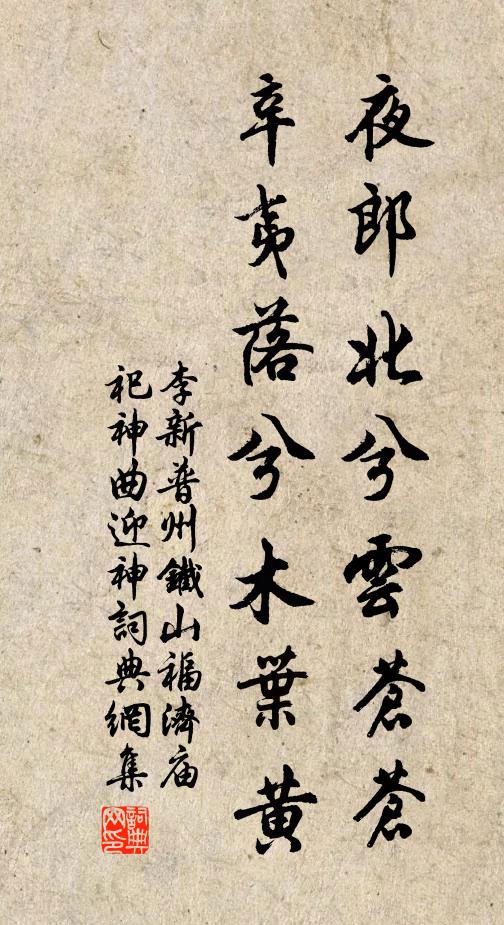 夜郎北兮雲蒼蒼
辛夷落兮木葉黃
李新普州鐵山福濟庙
祀神曲迎神詞典網集
詞典網印